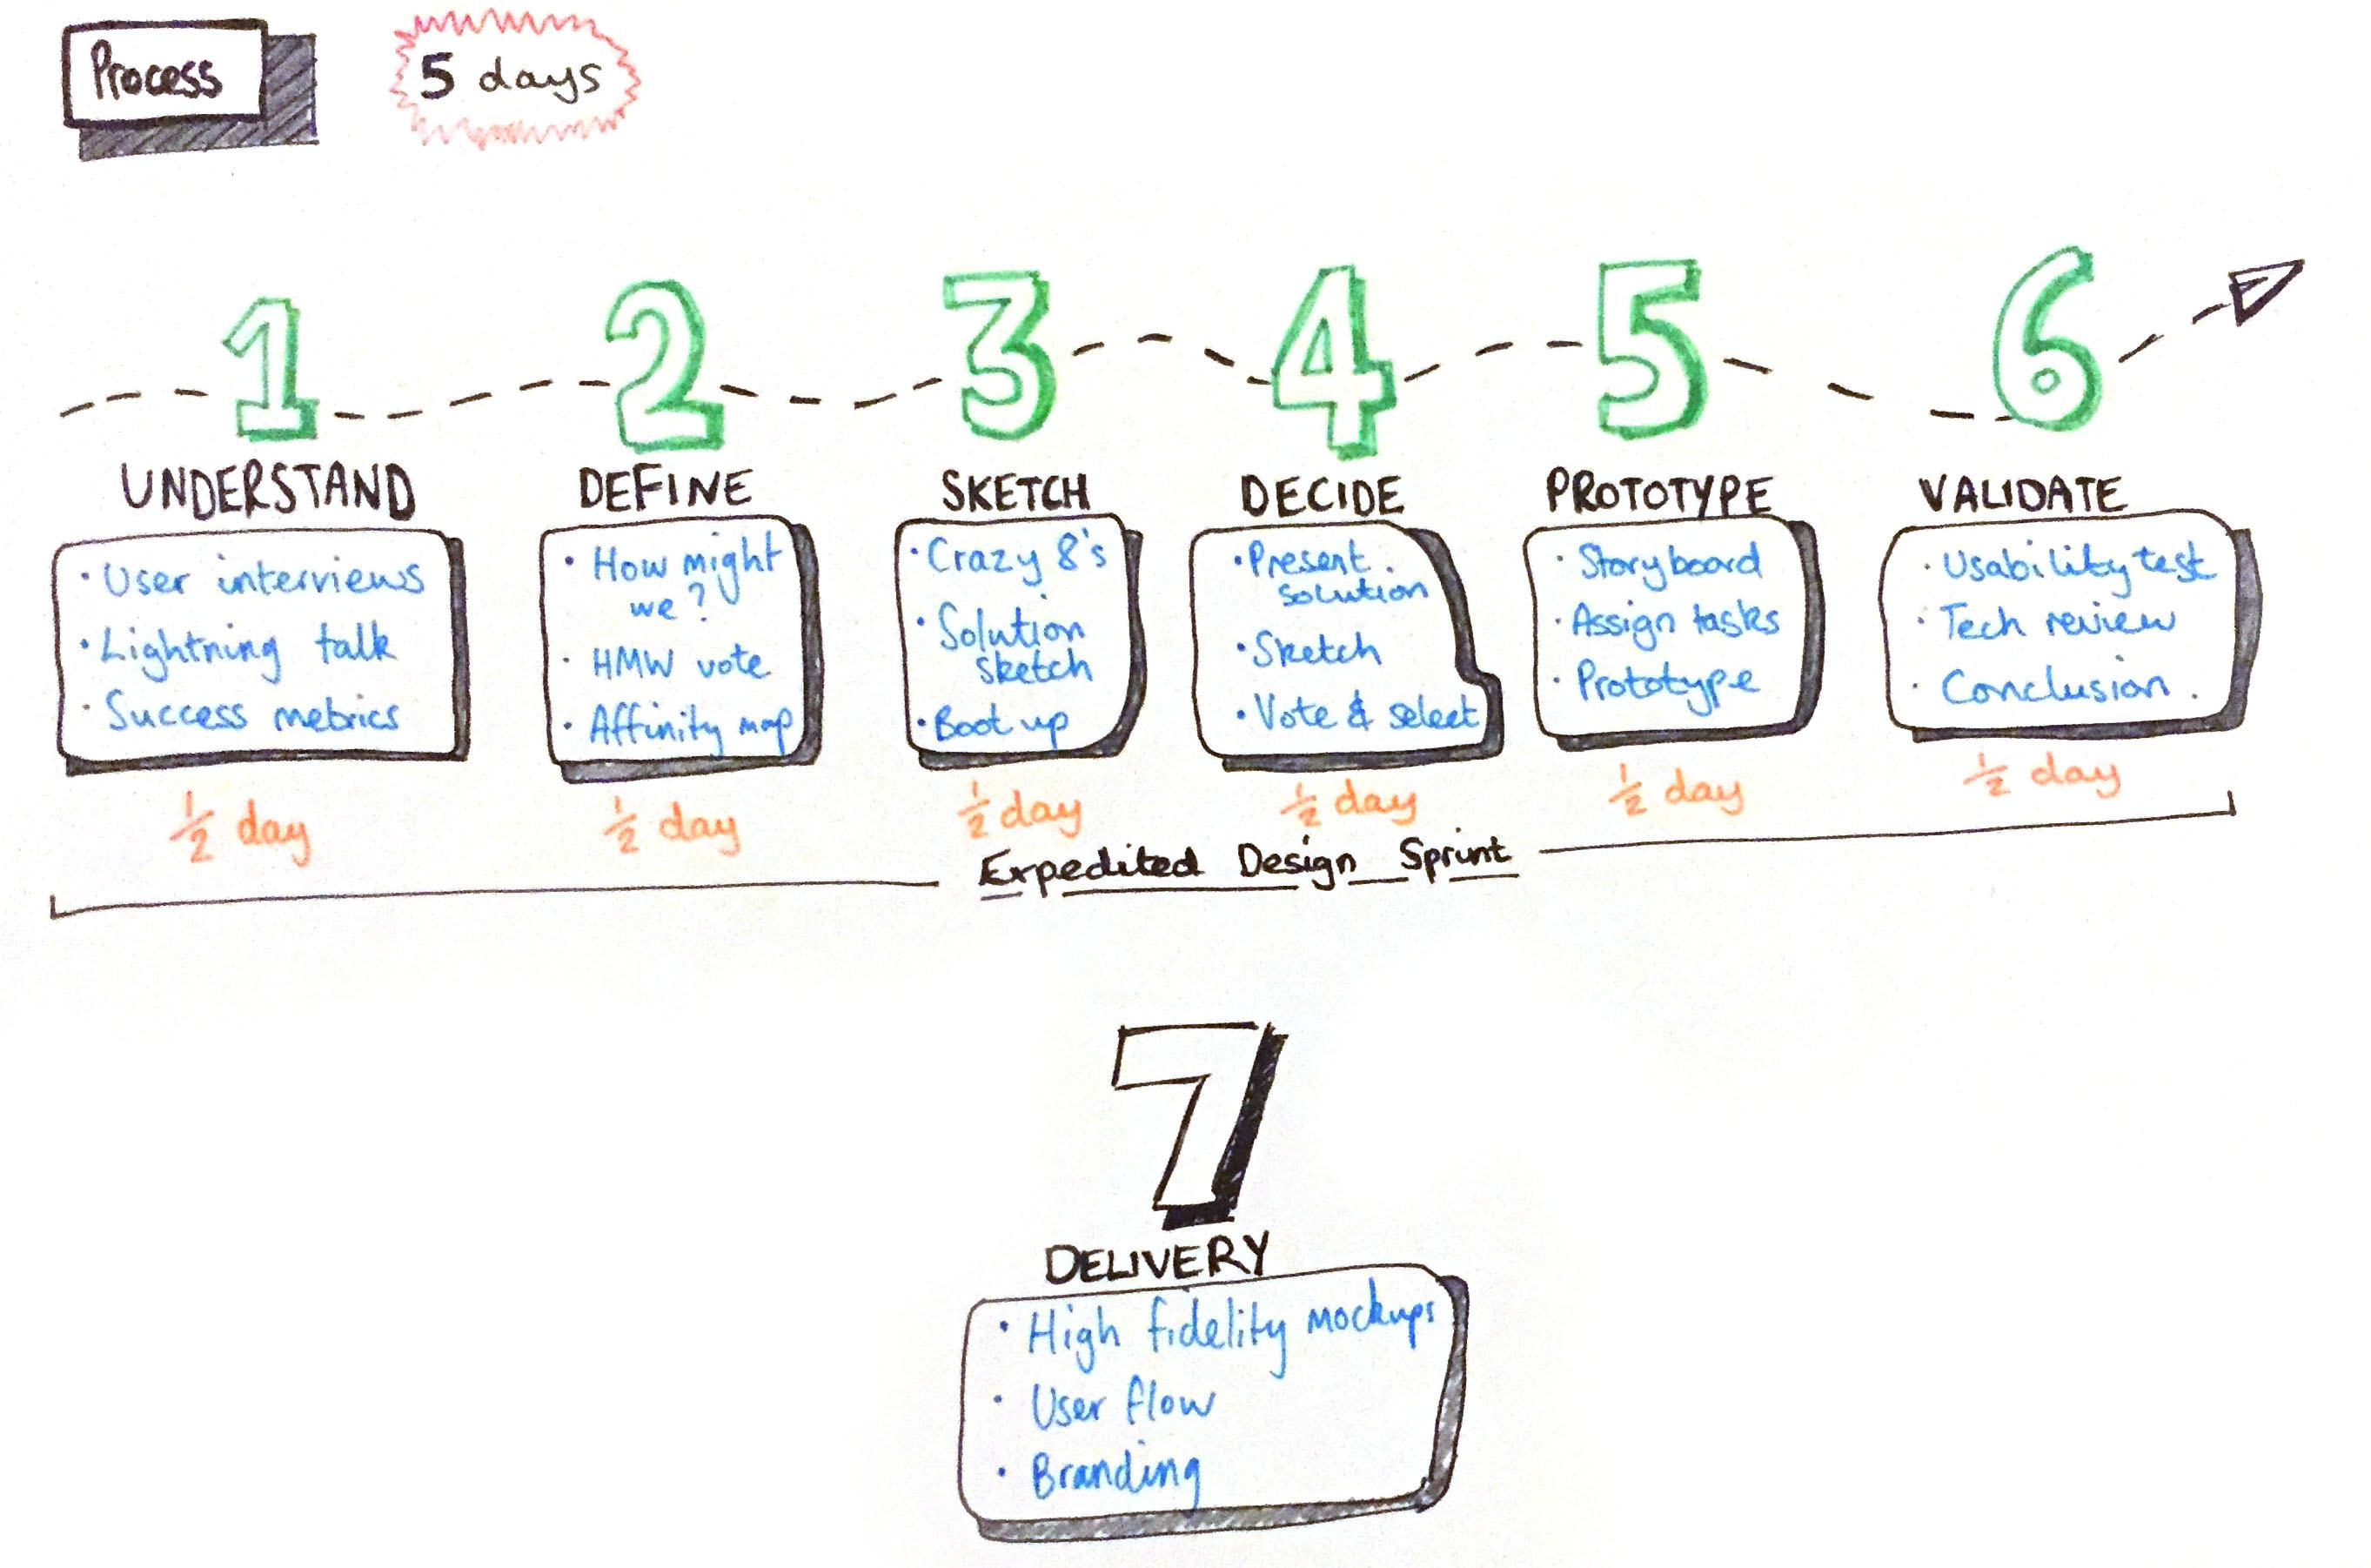 Process
5 days
1
UNDERSTAND
· User interviews
· Lightning talk
· Success metrics
½ day
2
DEFINE
· How might
we?
· HMW vote
· Affinity map
½ day
3
SKETCH
· Crazy 8's
· Solution
sketch
· Boot up
½ day
4
DECIDE
· Present
solution
· Sketch
· Vote & select
½ day
5
PROTOTYPE
· Storyboard
· Assign tasks
· Prototype
½ day
6
VALIDATE
· Usability test
· Tech review
· Conclusion.
½ day
Expedited Design Sprint
7
DELIVERY
· High fidelity mockups
· User flow
· Branding